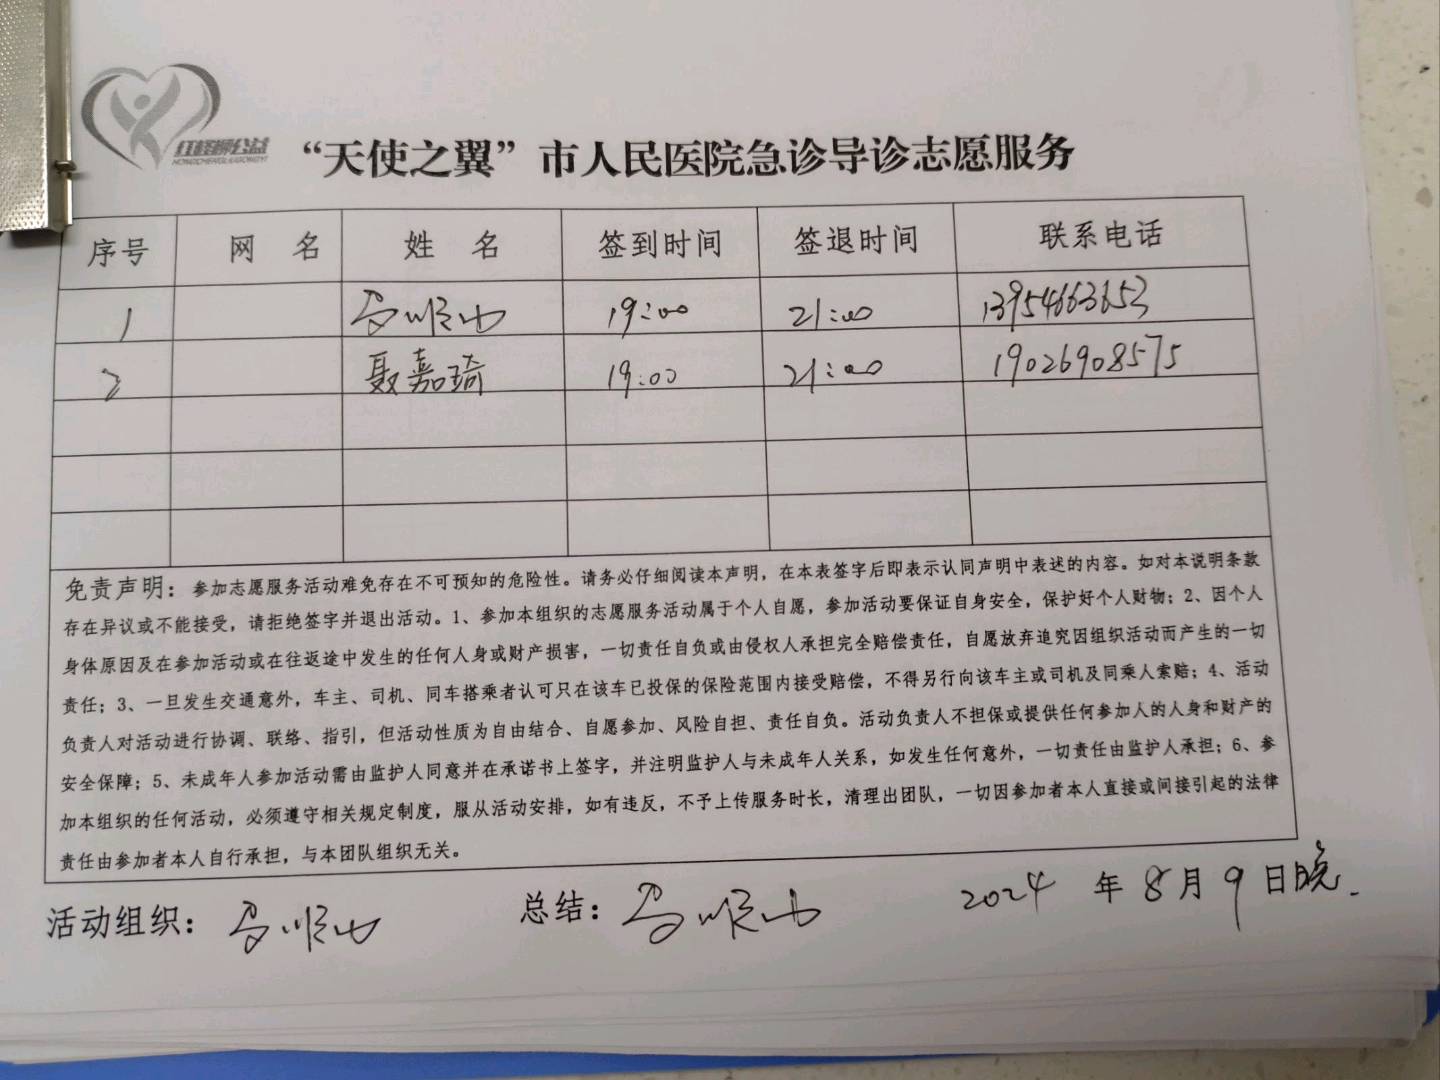 红橙柳公益
“天使之翼”市人民医院急诊导诊志愿服务
序号 网 名 姓 名 签到时间 签退时间 联系电话
1 顺 19:00 21:00 13954663653
2 聂嘉琦 19:00 21:00 19026908575
免责声明：参加志愿服务活动难免存在不可预知的危险性。请务必仔细阅读本声明，在本表签字后即表示认同声明中表述的内容。如对本说明条款
存在异议或不能接受，请拒绝签字并退出活动。1、参加本组织的志愿服务活动属于个人自愿，参加活动要保证自身安全，保护好个人财物；2、因个人
身体原因及在参加活动或在往返途中发生的任何人身或财产损害，一切责任自负或由侵权人承担完全赔偿责任，自愿放弃追究因组织活动而产生的一切
责任；3、一旦发生交通意外，车主、司机、同车搭乘者认可只在该车已投保的保险范围内接受赔偿，不得另行向该车主或司机及同乘人索赔；4、活动
负责人对活动进行协调、联络、指引，但活动性质为自由结合、自愿参加、风险自担、责任自负。活动负责人不担保或提供任何参加人的人身和财产的
安全保障；5、未成年人参加活动需由监护人同意并在承诺书上签字，并注明监护人与未成年人关系，如发生任何意外，一切责任由监护人承担；6、参
加本组织的任何活动，必须遵守相关规定制度，服从活动安排，如有违反，不予上传服务时长，清理出团队，一切因参加者本人直接或间接引起的法律
责任由参加者本人自行承担，与本团队组织无关。
活动组织： 顺 总结： 顺 2024 年 8 月 9 日晚.